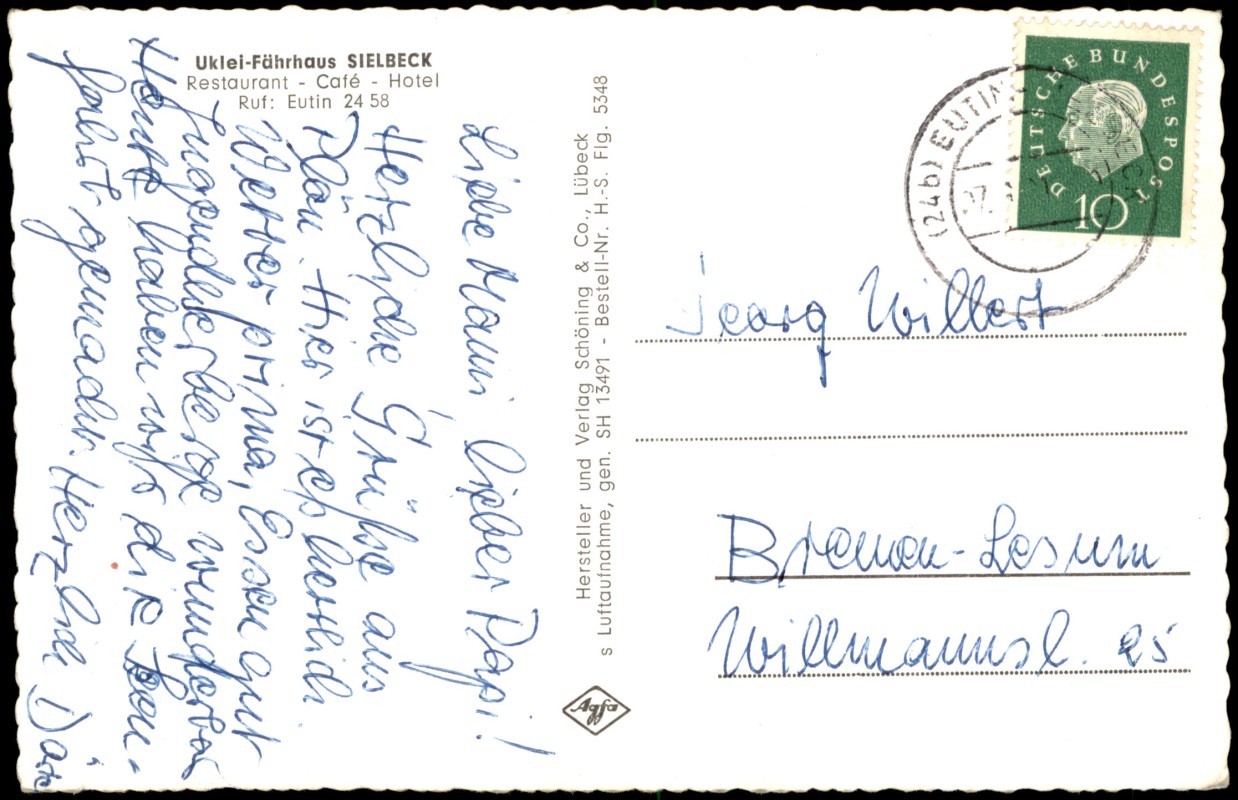 Uklei-Fährhaus SIELBECK
Restaurant - Café - Hotel
Ruf: Eutin 24 58
Liebe Mami lieber Papi!
Herzliche Grüße aus
Plön. Hier ist es herrlich
Wetter prima, Essen gut
Jugendherberge wunderbar
Heute haben wir die
fahrt gemacht. Herzlich
Hersteller und Verlag Schöning & Co., Lübeck
s Luftaufnahme, gen. SH 13491 - Bestell-Nr. H.-S. Flg. 5348
Agfa
DEUTSCHE BUNDESPOST
10
(24b) EUTIN
27.
Georg Willert
Bremen-Lesum
Willmannsl. 25